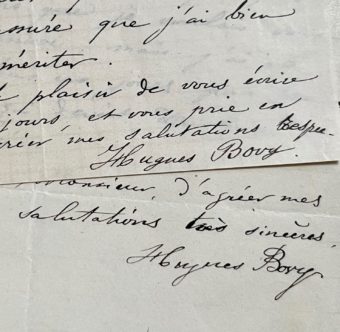 assuré que j'ai bien
mériter.
plaisir de vous écrire
jours, et vous prie en
mes salutations respec-
Hugues Bovy.
Monsieur, d'agréer mes
salutations très sincères,
Hugues Bovy